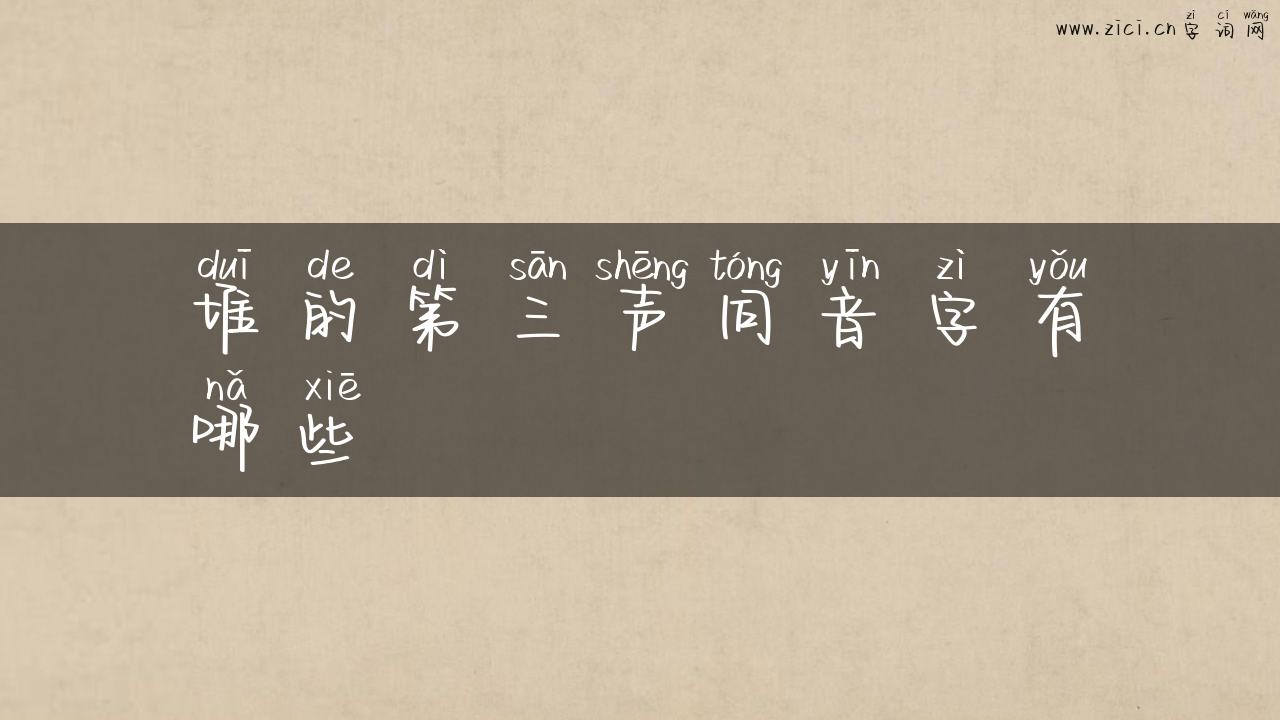 zì cí wǎng
www.zici.cn 字词网
duī de dì sān shēng tóng yīn zì yǒu
堆的第三声同音字有
nǎ xiē
哪些